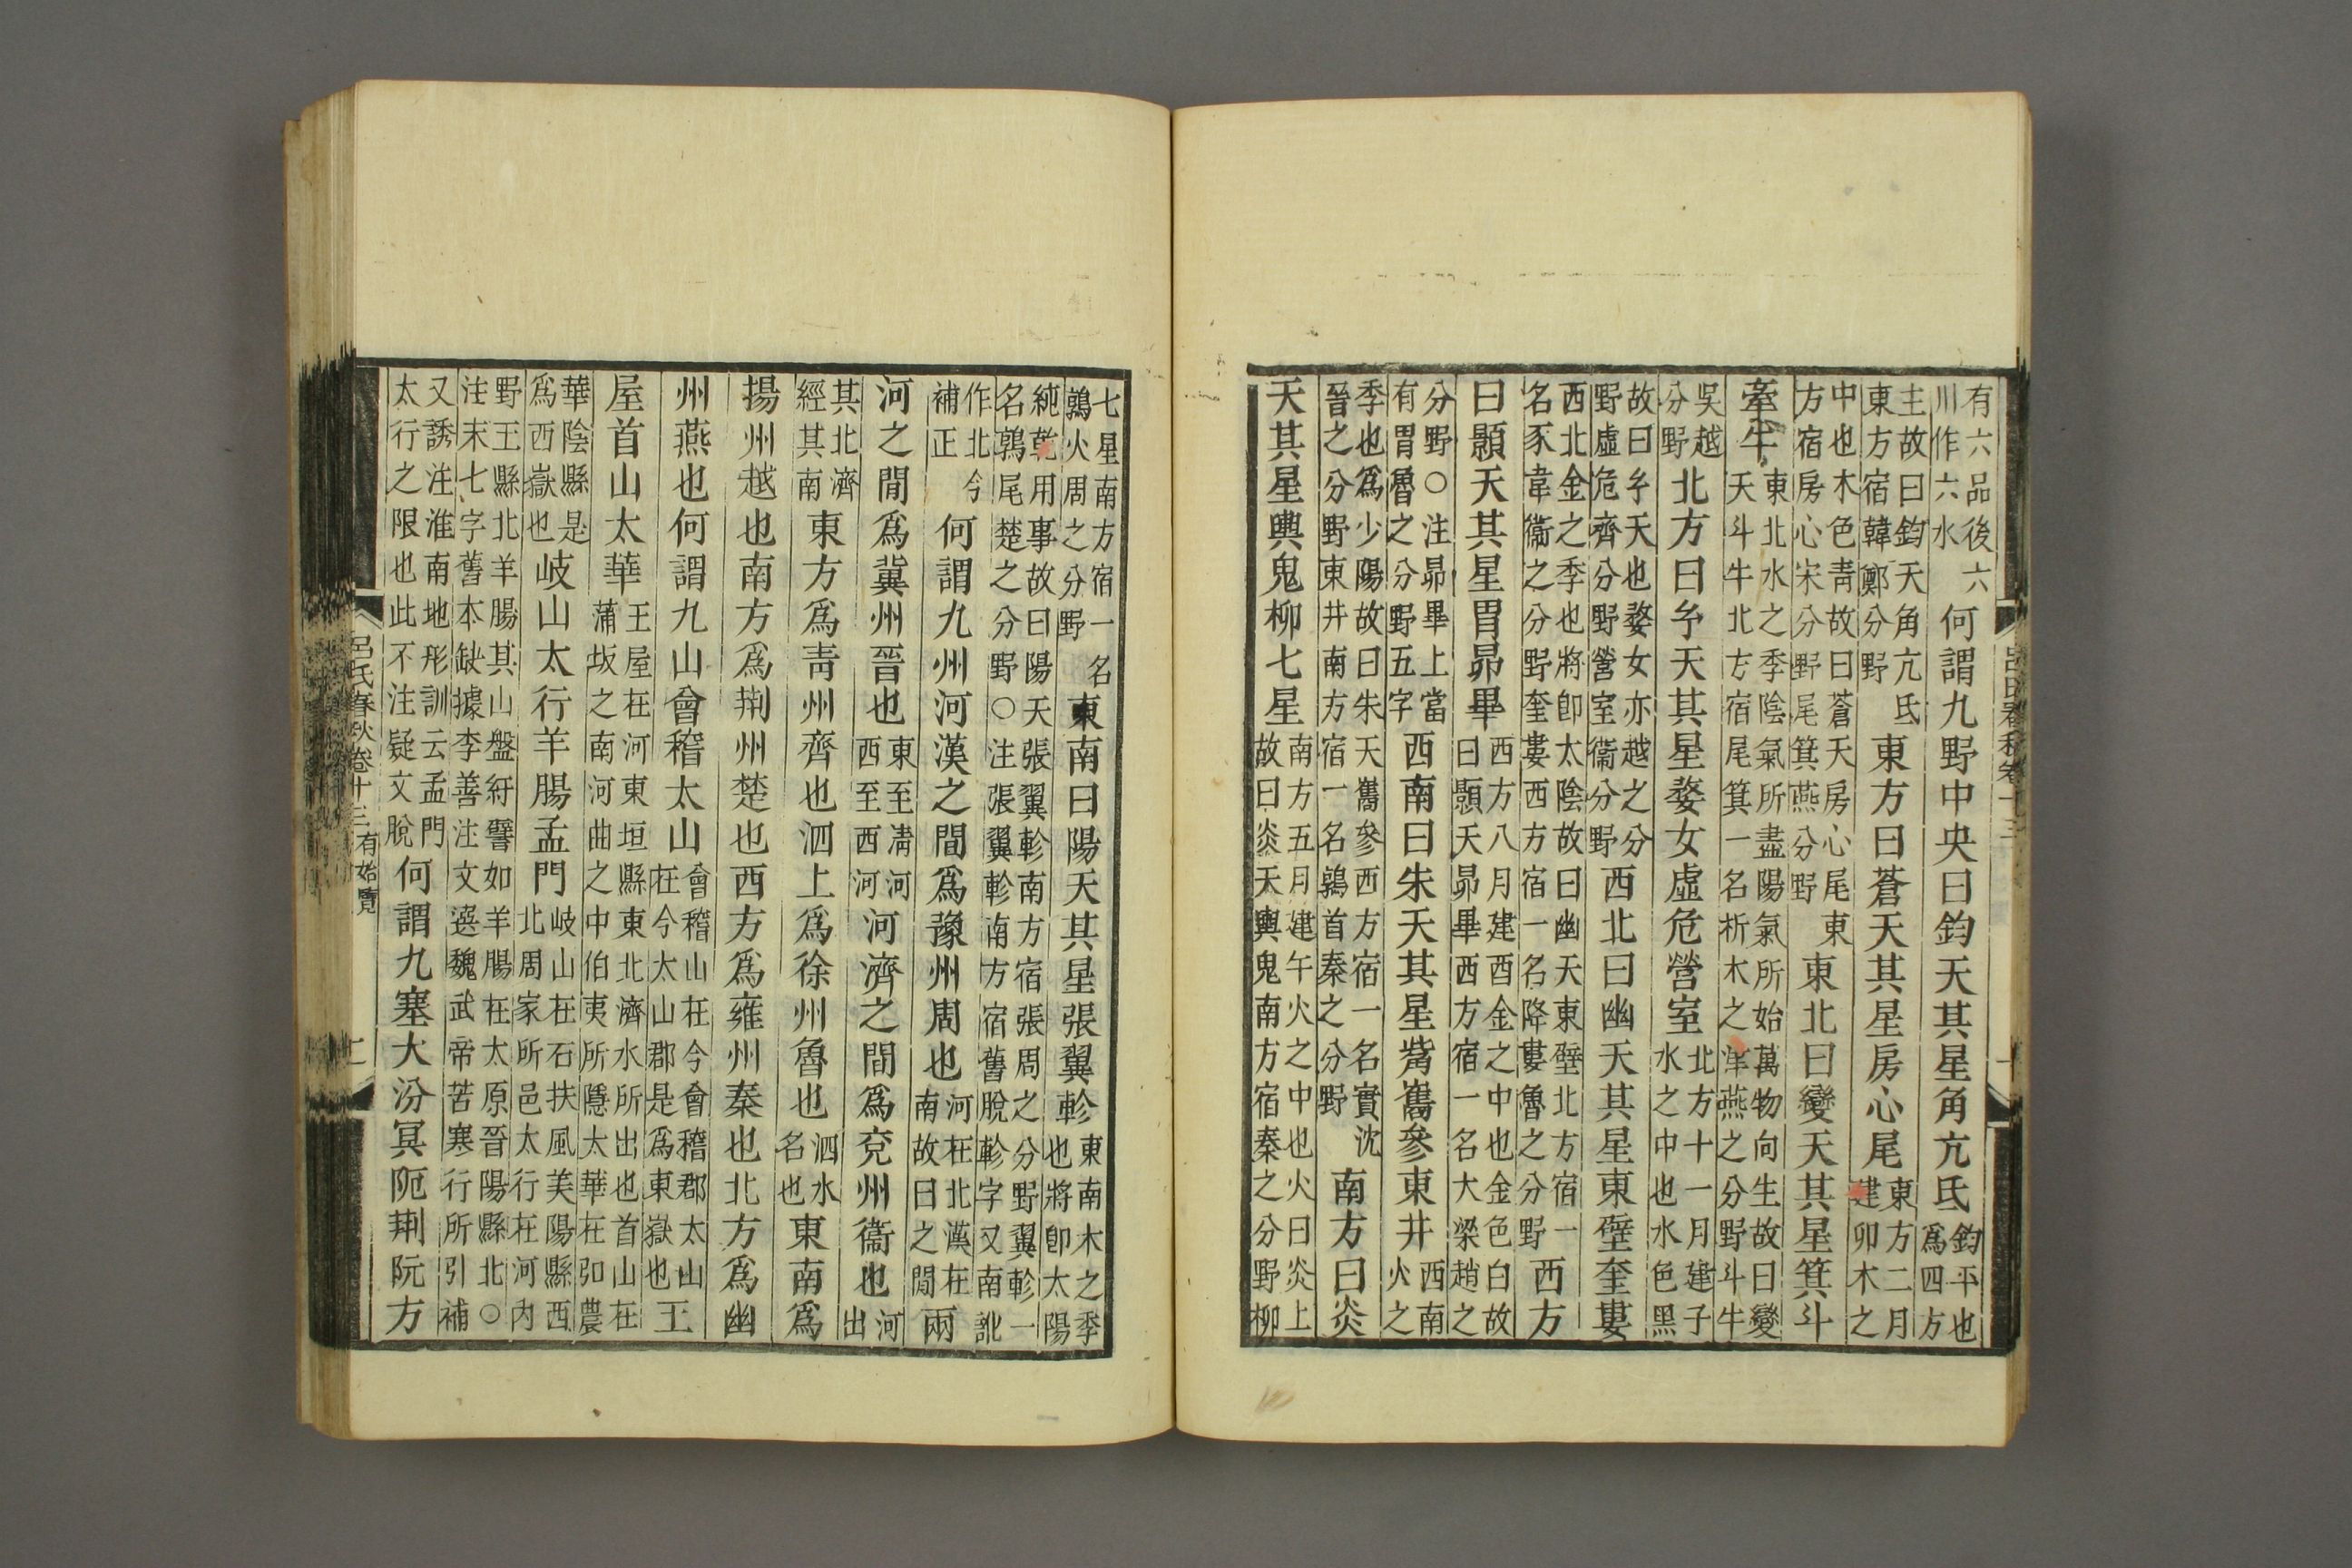 有六品後六川作六水何謂九野中央曰鈞天其星角亢氐鈞平也爲四方
主故曰鈞天角亢氐東方宿韓鄭分野東方曰蒼天其星房心尾東方二月建卯木之
中也木色青故曰蒼天房心尾東方宿房心宋分野尾箕燕分野東北曰變天其星箕斗
牽牛東北水之季陰氣所盡陽氣所始萬物向生故曰變天斗牛北方宿尾箕一名析木之津燕之分野斗牛
吳越分野北方曰玄天其星婺女虛危營室北方十一月建子水之中也水色黑
故曰玄天也婺女亦越之分野虛危齊分野營室衞分野西北曰幽天其星東壁奎婁
西北金之季也將卽太陰故曰幽天東壁北方宿一名豕韋衞之分野奎婁西方宿一名降婁魯之分野西方
曰顥天其星胃昴畢西方八月建酉金之中也金色白故曰顥天昴畢西方宿一名大梁趙之
分野○注昴畢上當有胃魯之分野五字西南曰朱天其星觜巂參東井西南火之
季也爲少陽故曰朱天巂參西方宿一名實沈晉之分野東井南方宿一名鶉首秦之分野南方曰炎
天其星輿鬼柳七星南方五月建午火之中也火曰炎上故曰炎天輿鬼南方宿秦之分野柳
七星南方宿一名鶉火周之分野東南曰陽天其星張翼軫東南木之季也將卽太陽
純乾用事故曰陽天張翼軫南方宿張周之分野翼軫一名鶉尾楚之分野○注張翼軫南方宿舊脫軫字又南訛
作北今補正何謂九州河漢之間爲豫州周也河在北漢在南故曰之閒兩
河之閒爲冀州晉也東至清河西至西河河濟之閒爲兗州衞也河出
其北濟經其南東方爲青州齊也泗上爲徐州魯也泗水名也東南爲
揚州越也南方爲荆州楚也西方爲雍州秦也北方爲幽
州燕也何謂九山會稽太山會稽山在今會稽郡太山在今太山郡是爲東嶽也王
屋首山太華王屋在河東垣縣東北濟水所出也首山在蒲坂之南河曲之中伯夷所隱太華在弘農
華陰縣是爲西嶽也岐山太行羊腸孟門岐山在右扶風美陽縣西北周家所邑太行在河內
野王縣北羊腸其山盤紆譬如羊腸在太原晉陽縣北○注末七字舊本缺據李善注文選魏武帝苦寒行所引補
又誘注淮南地形訓云孟門太行之限也此不注疑文脫何謂九塞大汾冥阨荆阮方
呂氏春秋卷十三有始覽 二